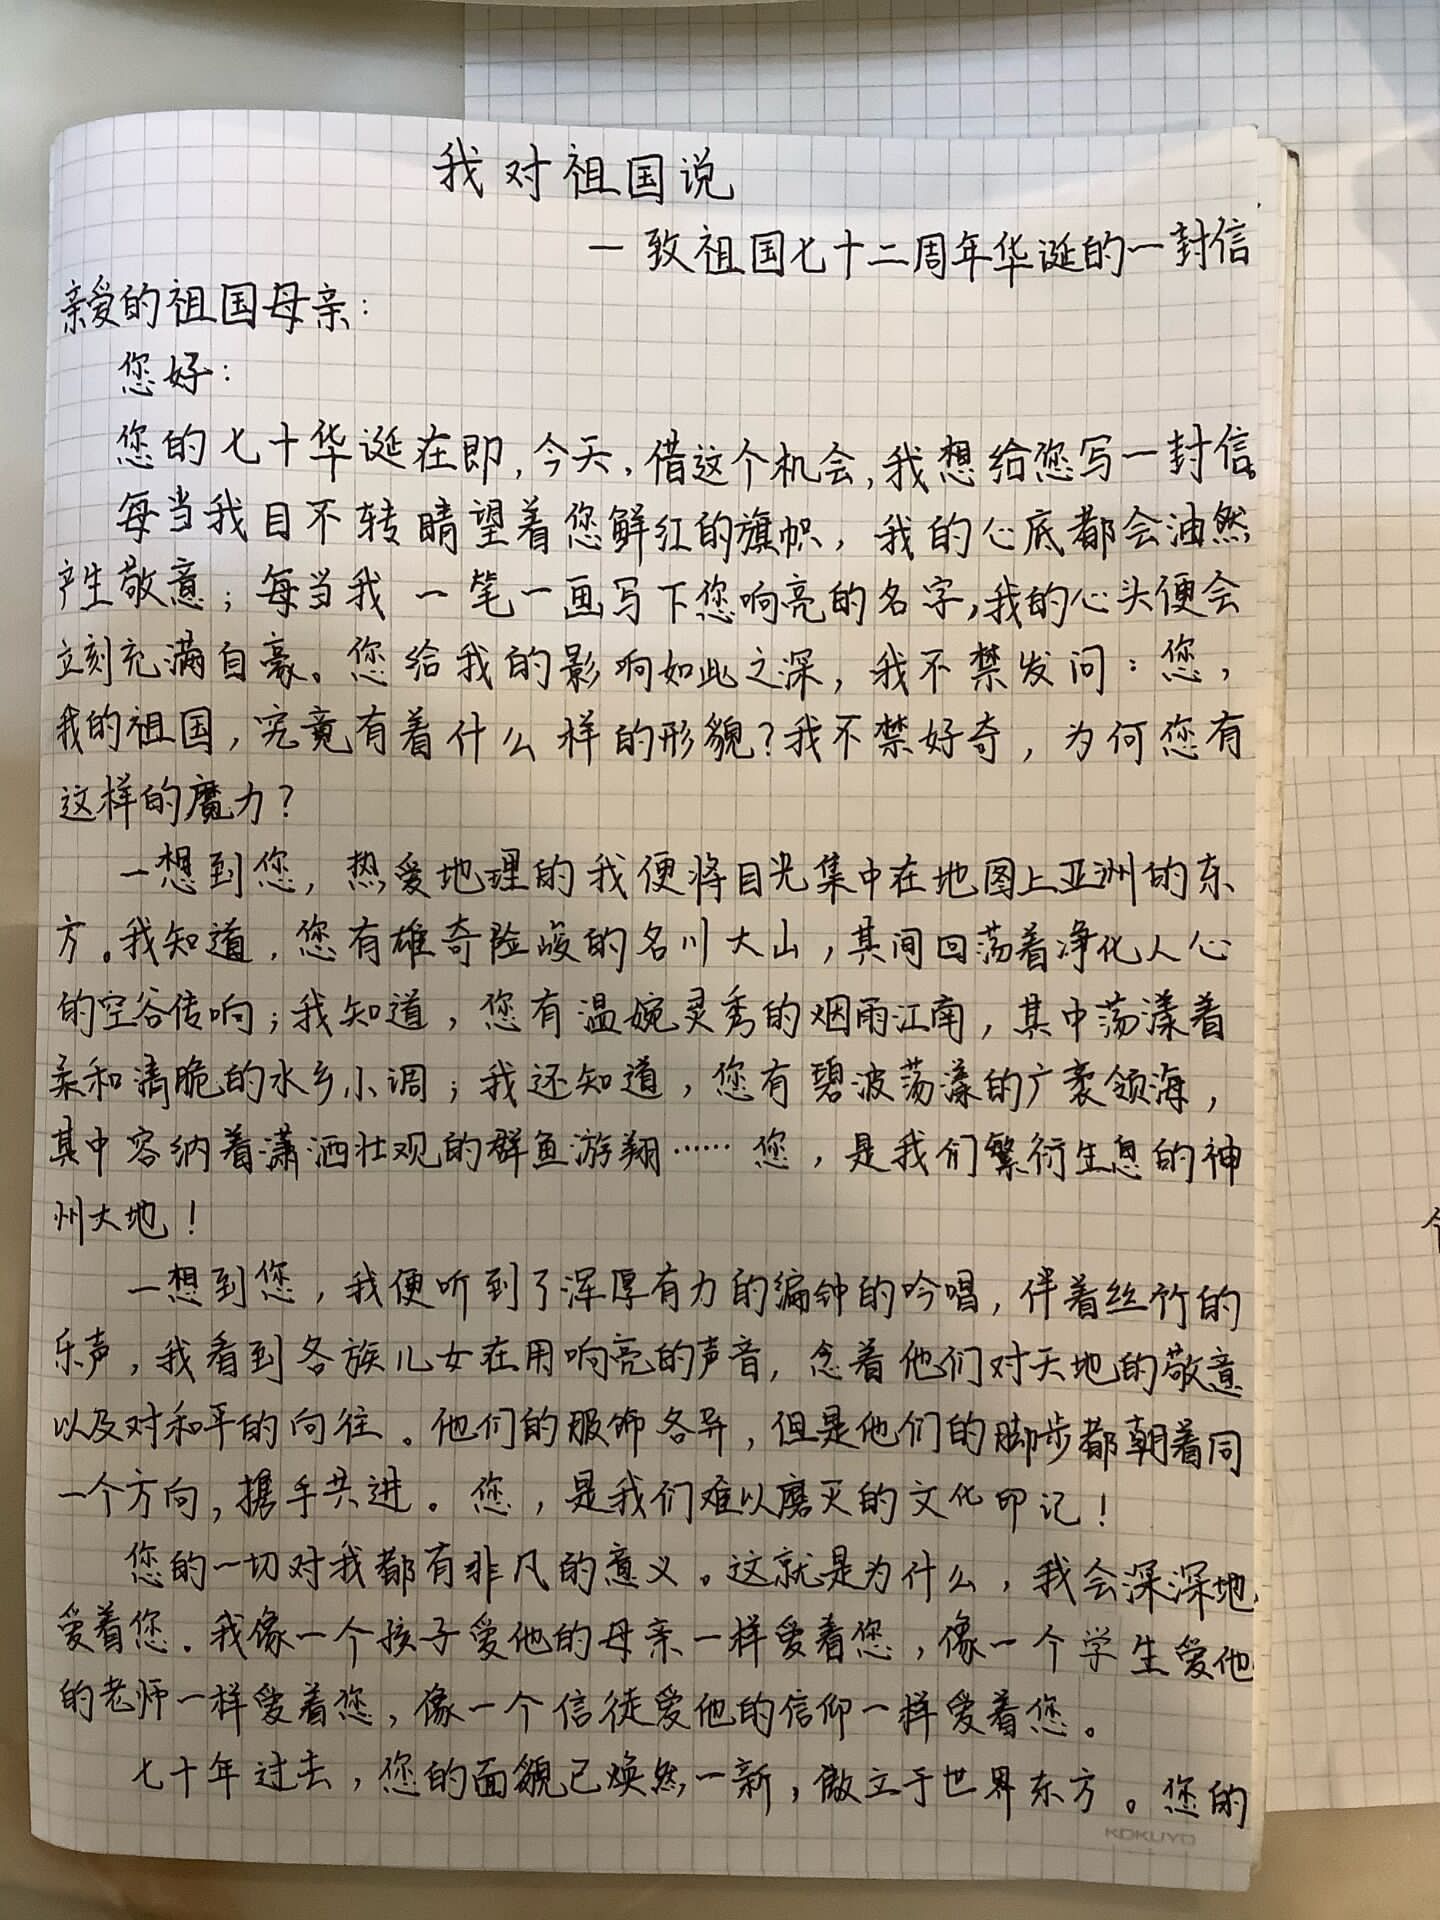 我对祖国说
一致祖国七十二周年华诞的一封信
亲爱的祖国母亲：
您好：
您的七十华诞在即，今天，借这个机会，我想给您写一封信。
每当我目不转睛望着您鲜红的旗帜，我的心底都会油然
产生敬意；每当我一笔一画写下您响亮的名字，我的心头便会
立刻充满自豪。您给我的影响如此之深，我不禁发问：您，
我的祖国，究竟有着什么样的形貌？我不禁好奇，为何您有
这样的魔力？
一想到您，热爱地理的我便将目光集中在地图上亚洲的东
方。我知道，您有雄奇险峻的名川大山，其间回荡着净化人心
的空谷传响；我知道，您有温婉灵秀的烟雨江南，其中荡漾着
柔和清脆的水乡小调；我还知道，您有碧波荡漾的广袤领海，
其中容纳着潇洒壮观的群鱼游翔……您，是我们繁衍生息的神
州大地！
一想到您，我便听到了浑厚有力的编钟的吟唱，伴着丝竹的
乐声，我看到各族儿女在用响亮的声音，念着他们对天地的敬意
以及对和平的向往。他们的服饰各异，但是他们的脚步都朝着同
一个方向，携手共进。您，是我们难以磨灭的文化印记！
您的一切对我都有非凡的意义。这就是为什么，我会深深地
爱着您。我像一个孩子爱他的母亲一样爱着您，像一个学生爱他
的老师一样爱着您，像一个信徒爱他的信仰一样爱着您。
七十年过去，您的面貌已焕然一新，傲立于世界东方。您的
KOKUYO